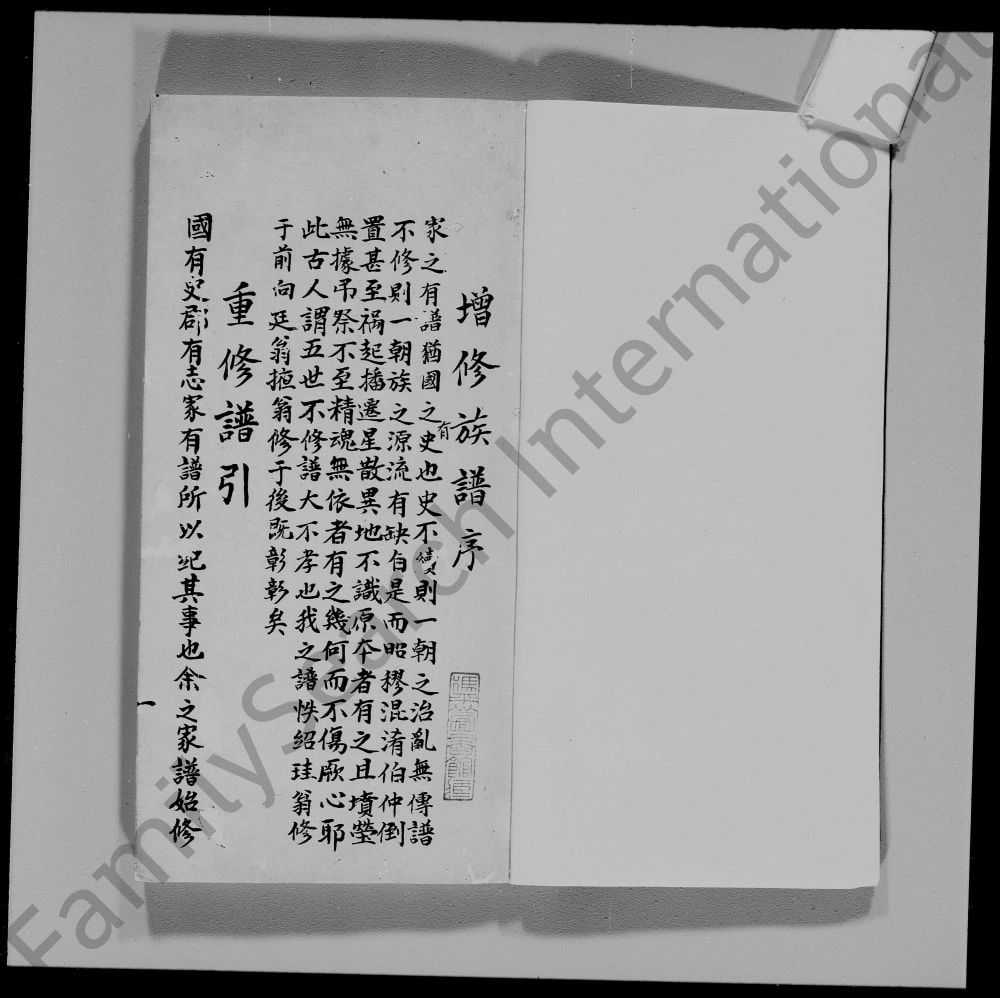 增修族譜序
家之有譜猶國之有史也史不續則一朝之治亂無傳譜
不修則一朝族之源流有缺自是而昭穆混淆伯仲倒
置甚至禍起播遷星散異地不識原本者有之且墳塋
無據吊祭不至精魂無依者有之幾何而不傷厥心耶
此古人謂五世不修譜大不孝也我之譜帙紹珪翁修
于前向廷翁掀翁修于後既彰彰矣
重修譜引
國有史郡有志家有譜所以紀其事也余之家譜始修
一
FamilySearch International